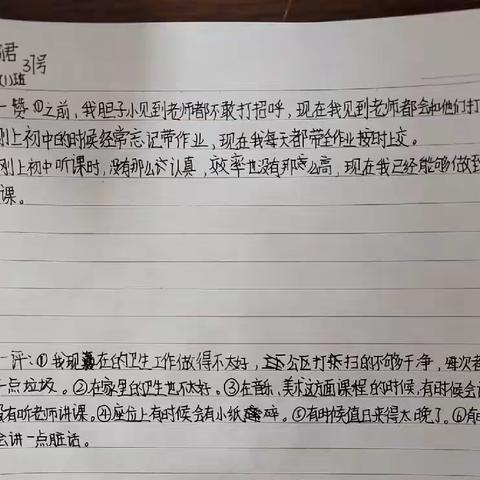 君
37号
(1)班
一赞①之前,我胆子小见到老师都不敢打招呼,现在我见到老师都会和他们打
刚上初中的时候经常忘记带作业,现在我每天都带全作业按时上交。
刚上初中听课时,没有那么认真,效率也没有那么高,现在我已经能够做到
课。
一评:①我现在的卫生工作做得不太好,公区打扫的不够干净,每次者
一点垃圾。②在家里的卫生也不太好。③在音乐、美术这方面课程的时候,有时候会
没有听老师讲课。④座位上有时候会有小纸碎。⑤有时候值日来得太晚了。⑥有
会讲一点脏话。